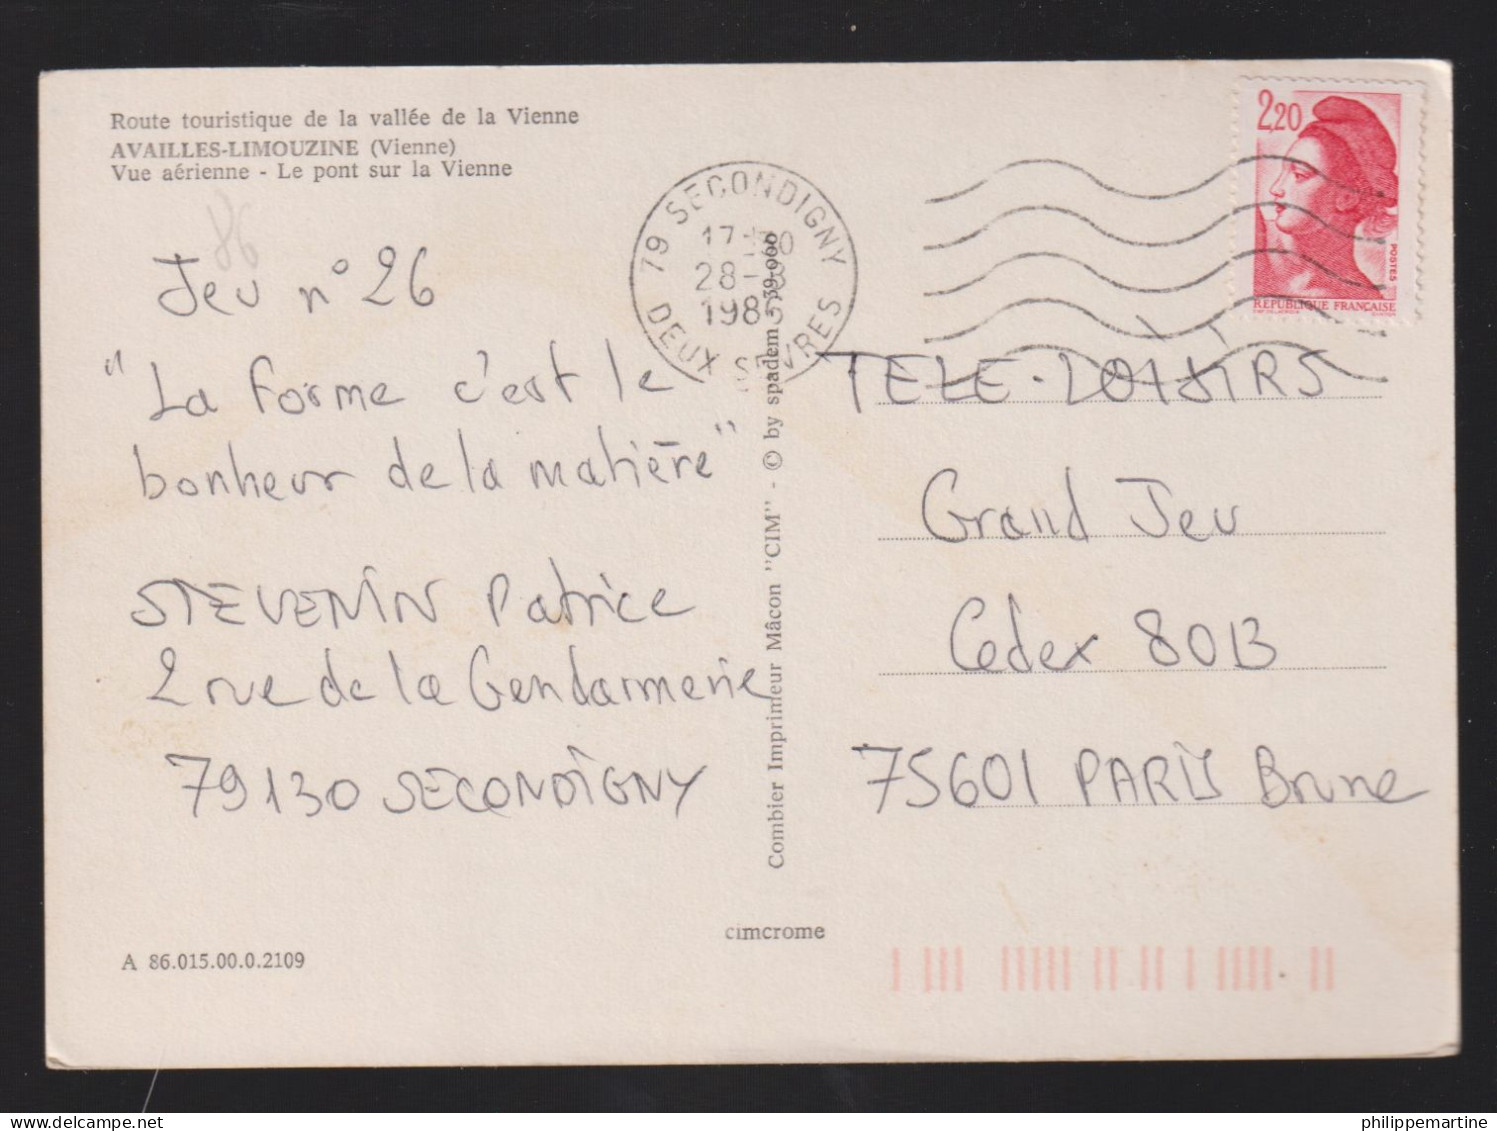 Route touristique de la vallée de la Vienne
AVAILLES-LIMOUZINE (Vienne)
Vue aérienne - Le pont sur la Vienne
86
Jeu n° 26
"La forme c'est le
bonheur de la matière"
STEVENIN Patrice
2 rue de la Gendarmerie
79130 SECONDIGNY
A 86.015.00.0.2109
79 SECONDIGNY
28-
DEUX SEVRES
Combier Imprimeur Mâcon "CIM" - © by spadem - 39-000
cimcrome
2,20
POSTES
REPUBLIQUE FRANÇAISE
TELE-LOISIRS
Grand Jeu
Cedex 80B
75601 PARIS Brune
philippemartine